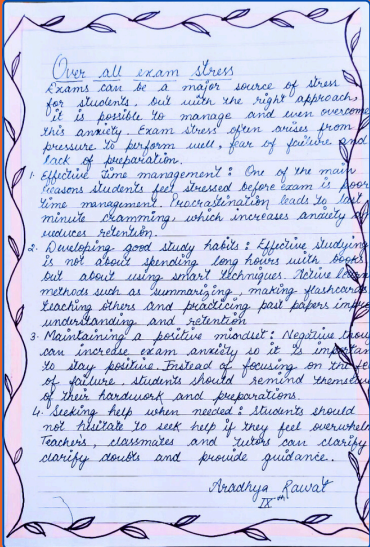 Over all exam stress
Exams can be a major source of stress
for students, but with the right approach,
it is possible to manage and even overcome
this anxiety. Exam stress often arises from
pressure to perform well, fear of failure and
lack of preparation.
1. Effective Time management : One of the main
reasons students feel stressed before exam is poor
time management. Procrastination leads to last
minute cramming which increases anxiety &
reduces retention.
2. Developing good study habits : Effective studying
is not about spending long hours with books
but about using smart techniques. Active
methods such as summarizing, making flashcards
teaching others and practicing past papers
understanding and retention
3. Maintaining a positive mindset : Negative
can increase exam anxiety so it is important
to stay positive. Instead of focusing on the
of failure, students should remind
of their hardwork and preparations.
4. Seeking help when needed : Students should
not hesitate to seek help if they feel
Teachers, classmates and tutors can clarify
clarify doubts and provide guidance.
Aradhya Rawat
IX th